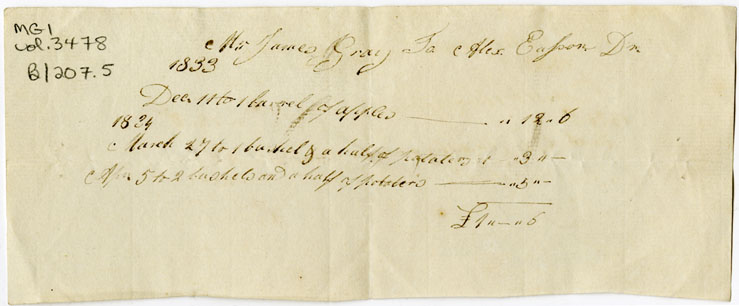 MG1
vol. 3478
B/207.5
Mr James Gray To Alex. Easson Dr
1833
Decr 11 to 1 barrel of apples — " 12 " 6
1834
March 27 to 1 bushel & a half of potatoes — " 3 " —
Apr 5 to 2 bushels and a half of potatoes — " 5 " —
£1 " — " 6